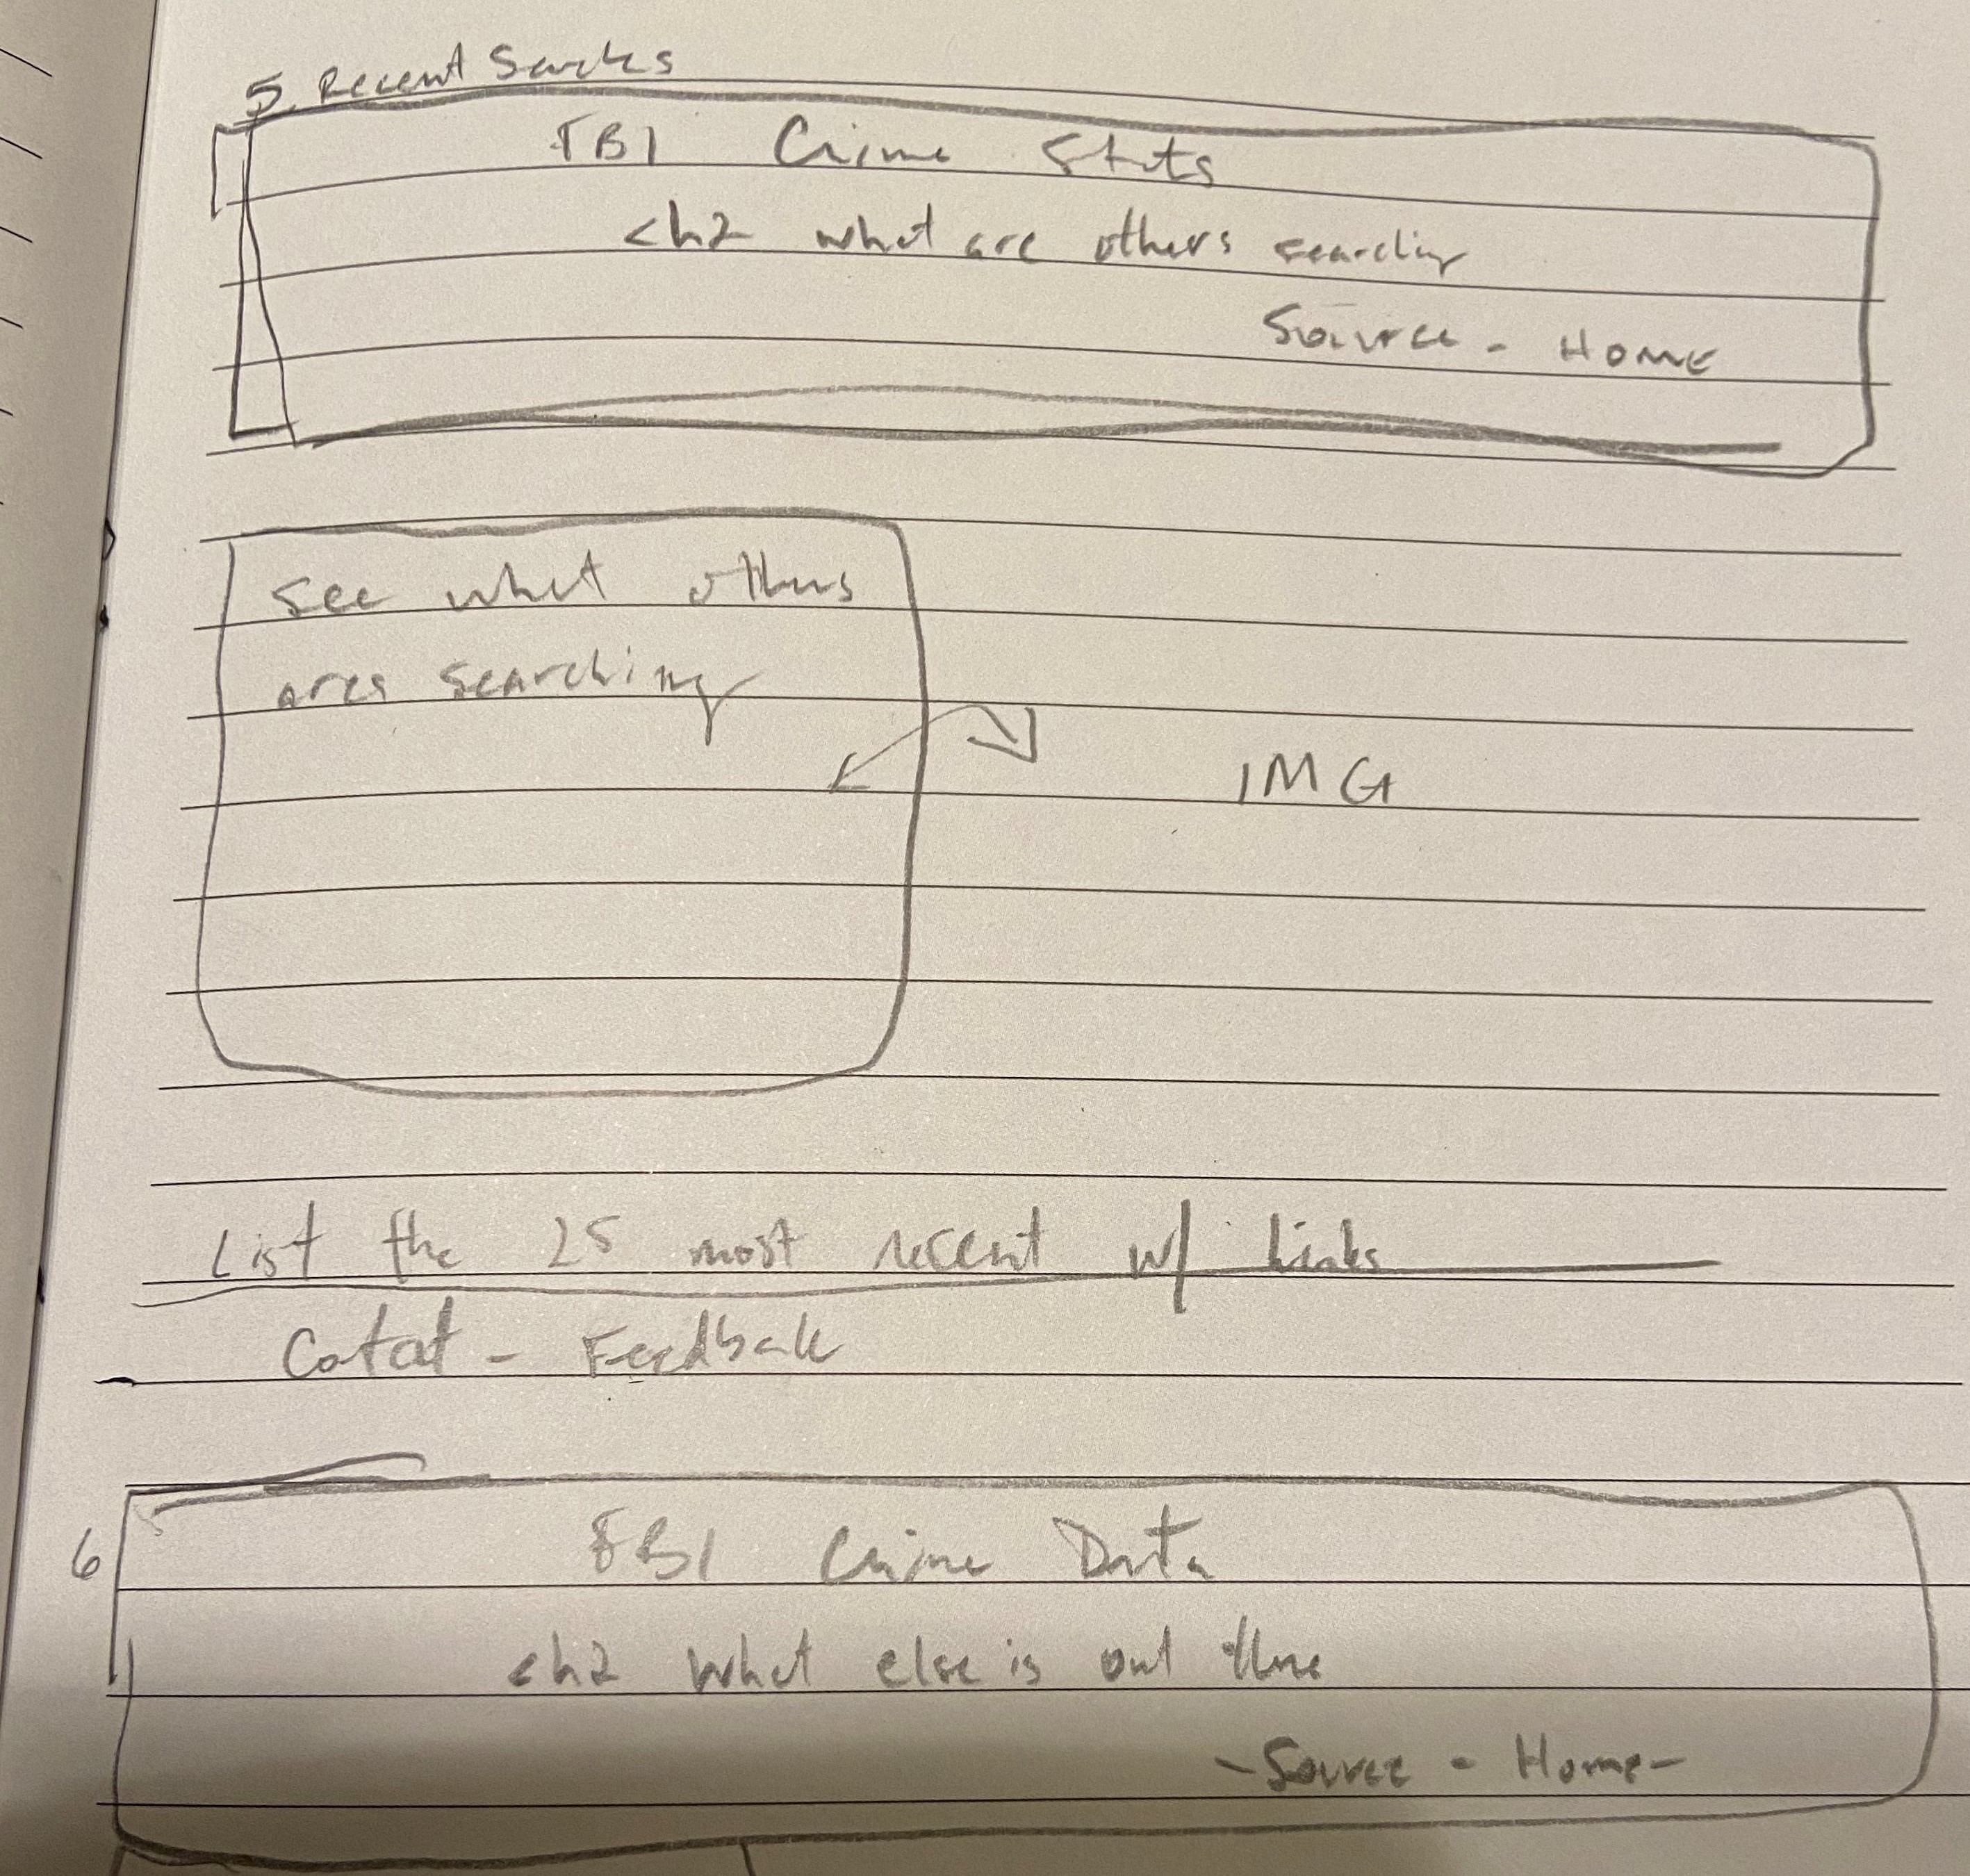 5. Recent Searches
FBI Crime Stats
<h2 what are others searching
Source - Home
See what others
ares searching
IMG
List the 25 most recent w/ Links
Cotat - Feedback
6
FBI Crime Data
<h2 What else is out there
- Source - Home -